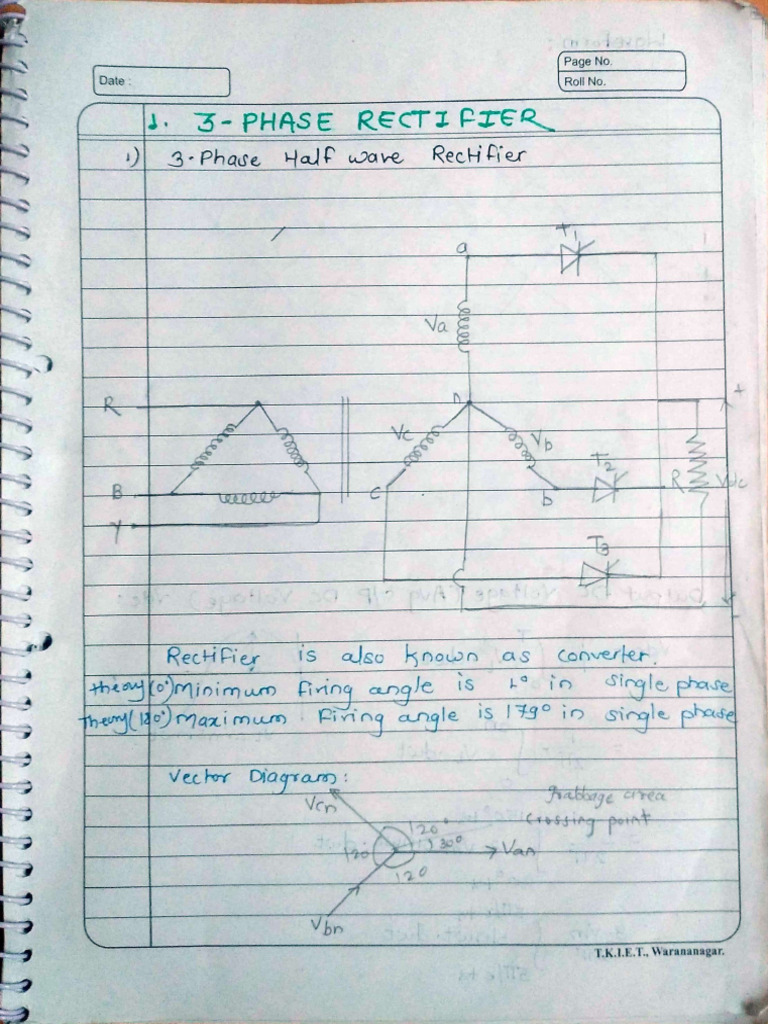 Page No.
Date :
Roll No.
1. 3-PHASE RECTIFIER
1) 3-Phase Half wave Rectifier
a
T1
Va
R
n
+
Vc
Vb
T2
R
Vdc
B
c
b
Y
T3
-
Rectifier is also known as converter.
theory(0°) Minimum firing angle is 1° in single phase
theory(180°) Maximum firing angle is 179° in single phase
Vector Diagram:
Vcn
area
120°
crossing point
120
30°
Van
120
Vbn
T.K.I.E.T., Warananagar.